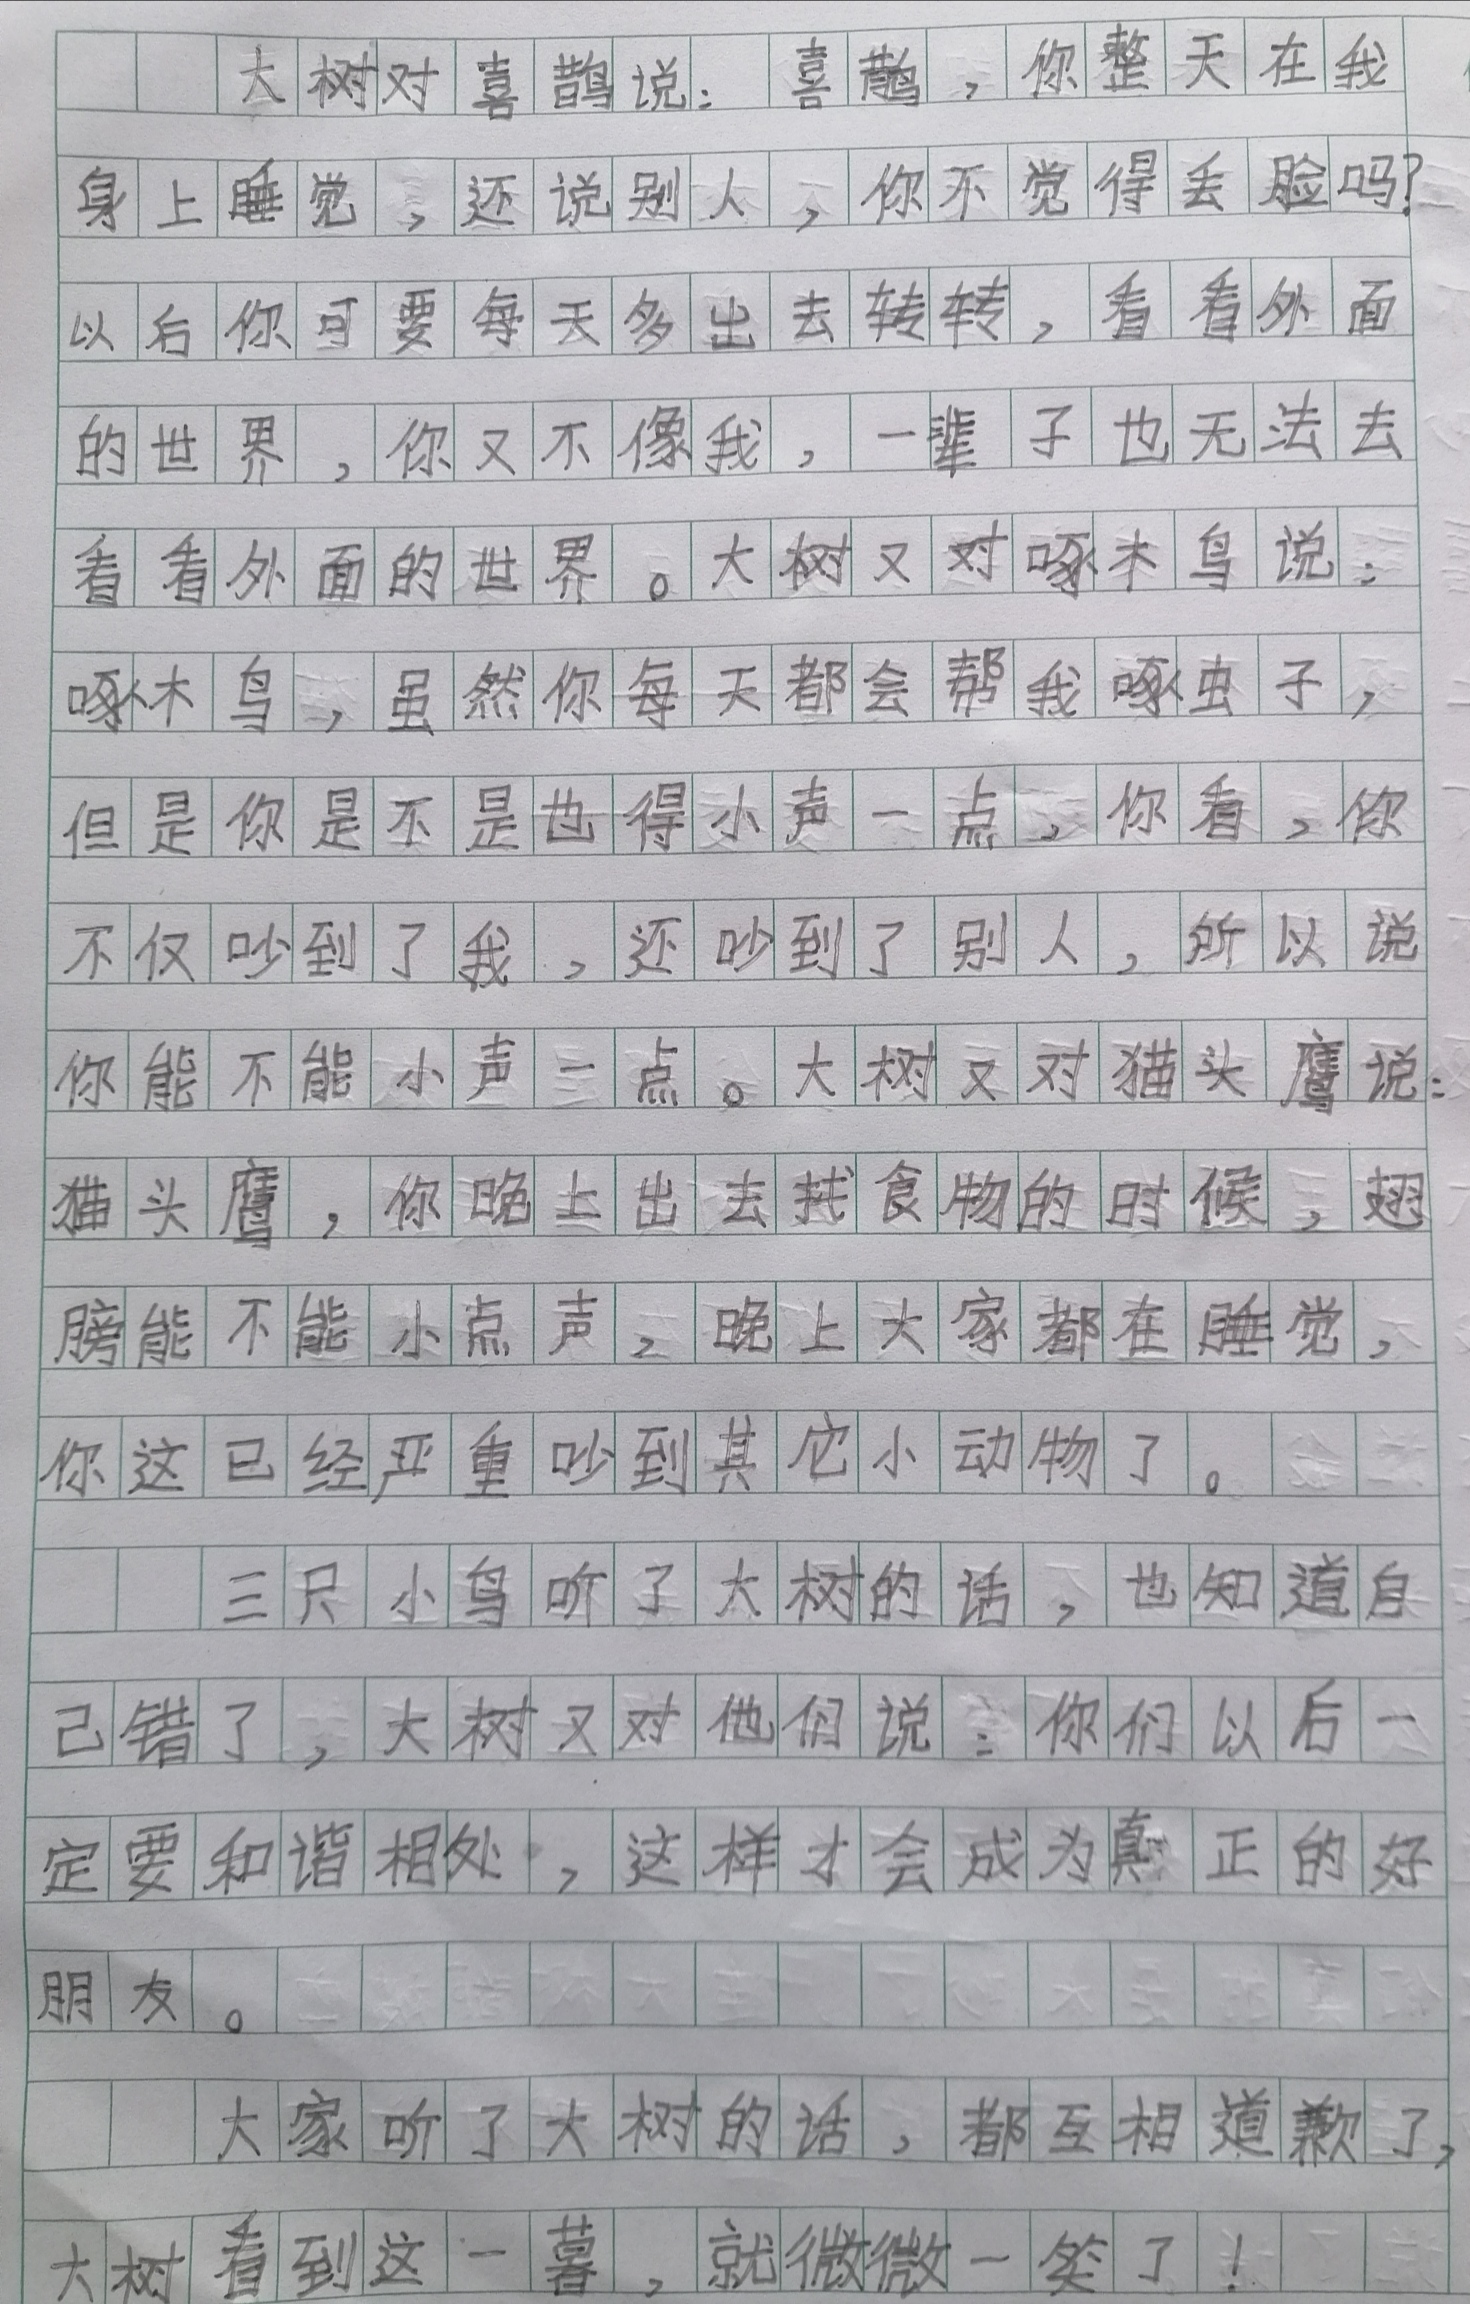 大树对喜鹊说：喜鹊，你整天在我
身上睡觉，还说别人，你不觉得丢脸吗？
以后你可要每天多出去转转，看看外面
的世界，你又不像我，一辈子也无法去
看看外面的世界。大树又对啄木鸟说：
啄木鸟，虽然你每天都会帮我啄虫子，
但是你是不是也得小声一点，你看，你
不仅吵到了我，还吵到了别人，所以说
你能不能小声一点。大树又对猫头鹰说：
猫头鹰，你晚上出去找食物的时候，翅
膀能不能小点声，晚上大家都在睡觉，
你这已经严重吵到其它小动物了。
三只小鸟听了大树的话，也知道自
己错了，大树又对他们说：你们以后一
定要和谐相处，这样才会成为真正的好
朋友。
大家听了大树的话，都互相道歉了，
大树看到这一暮，就微微一笑了！